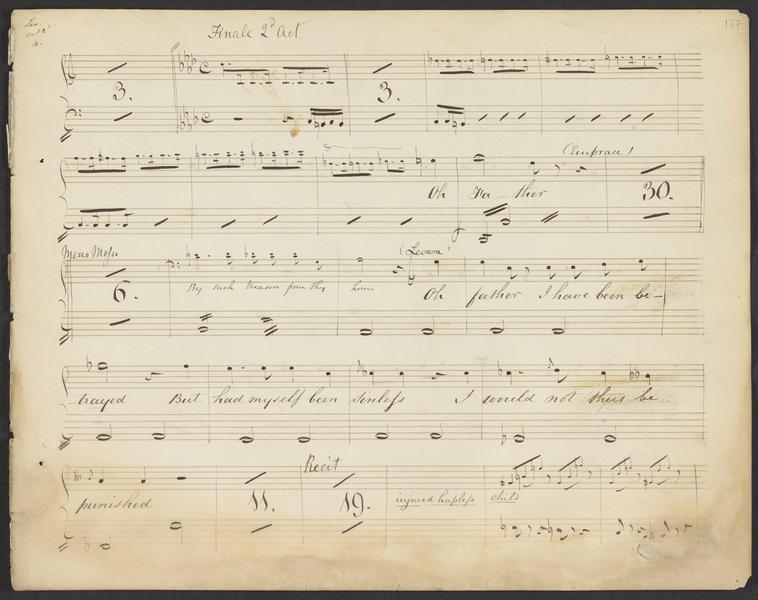 Leo
act 2d
4.
137
Finale 2d Act
3. 3.
(Embrace)
Oh Fa - ther 30.
Meno Mosso (Leonora)
6. By such treason from thy home Oh father I have been be-
trayed But had myself been sinless I would not thus be
Recit
punished 11. 19. injured hapless child